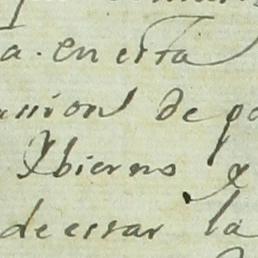 a. en esta
union de po
Ybierno y
de esrar la